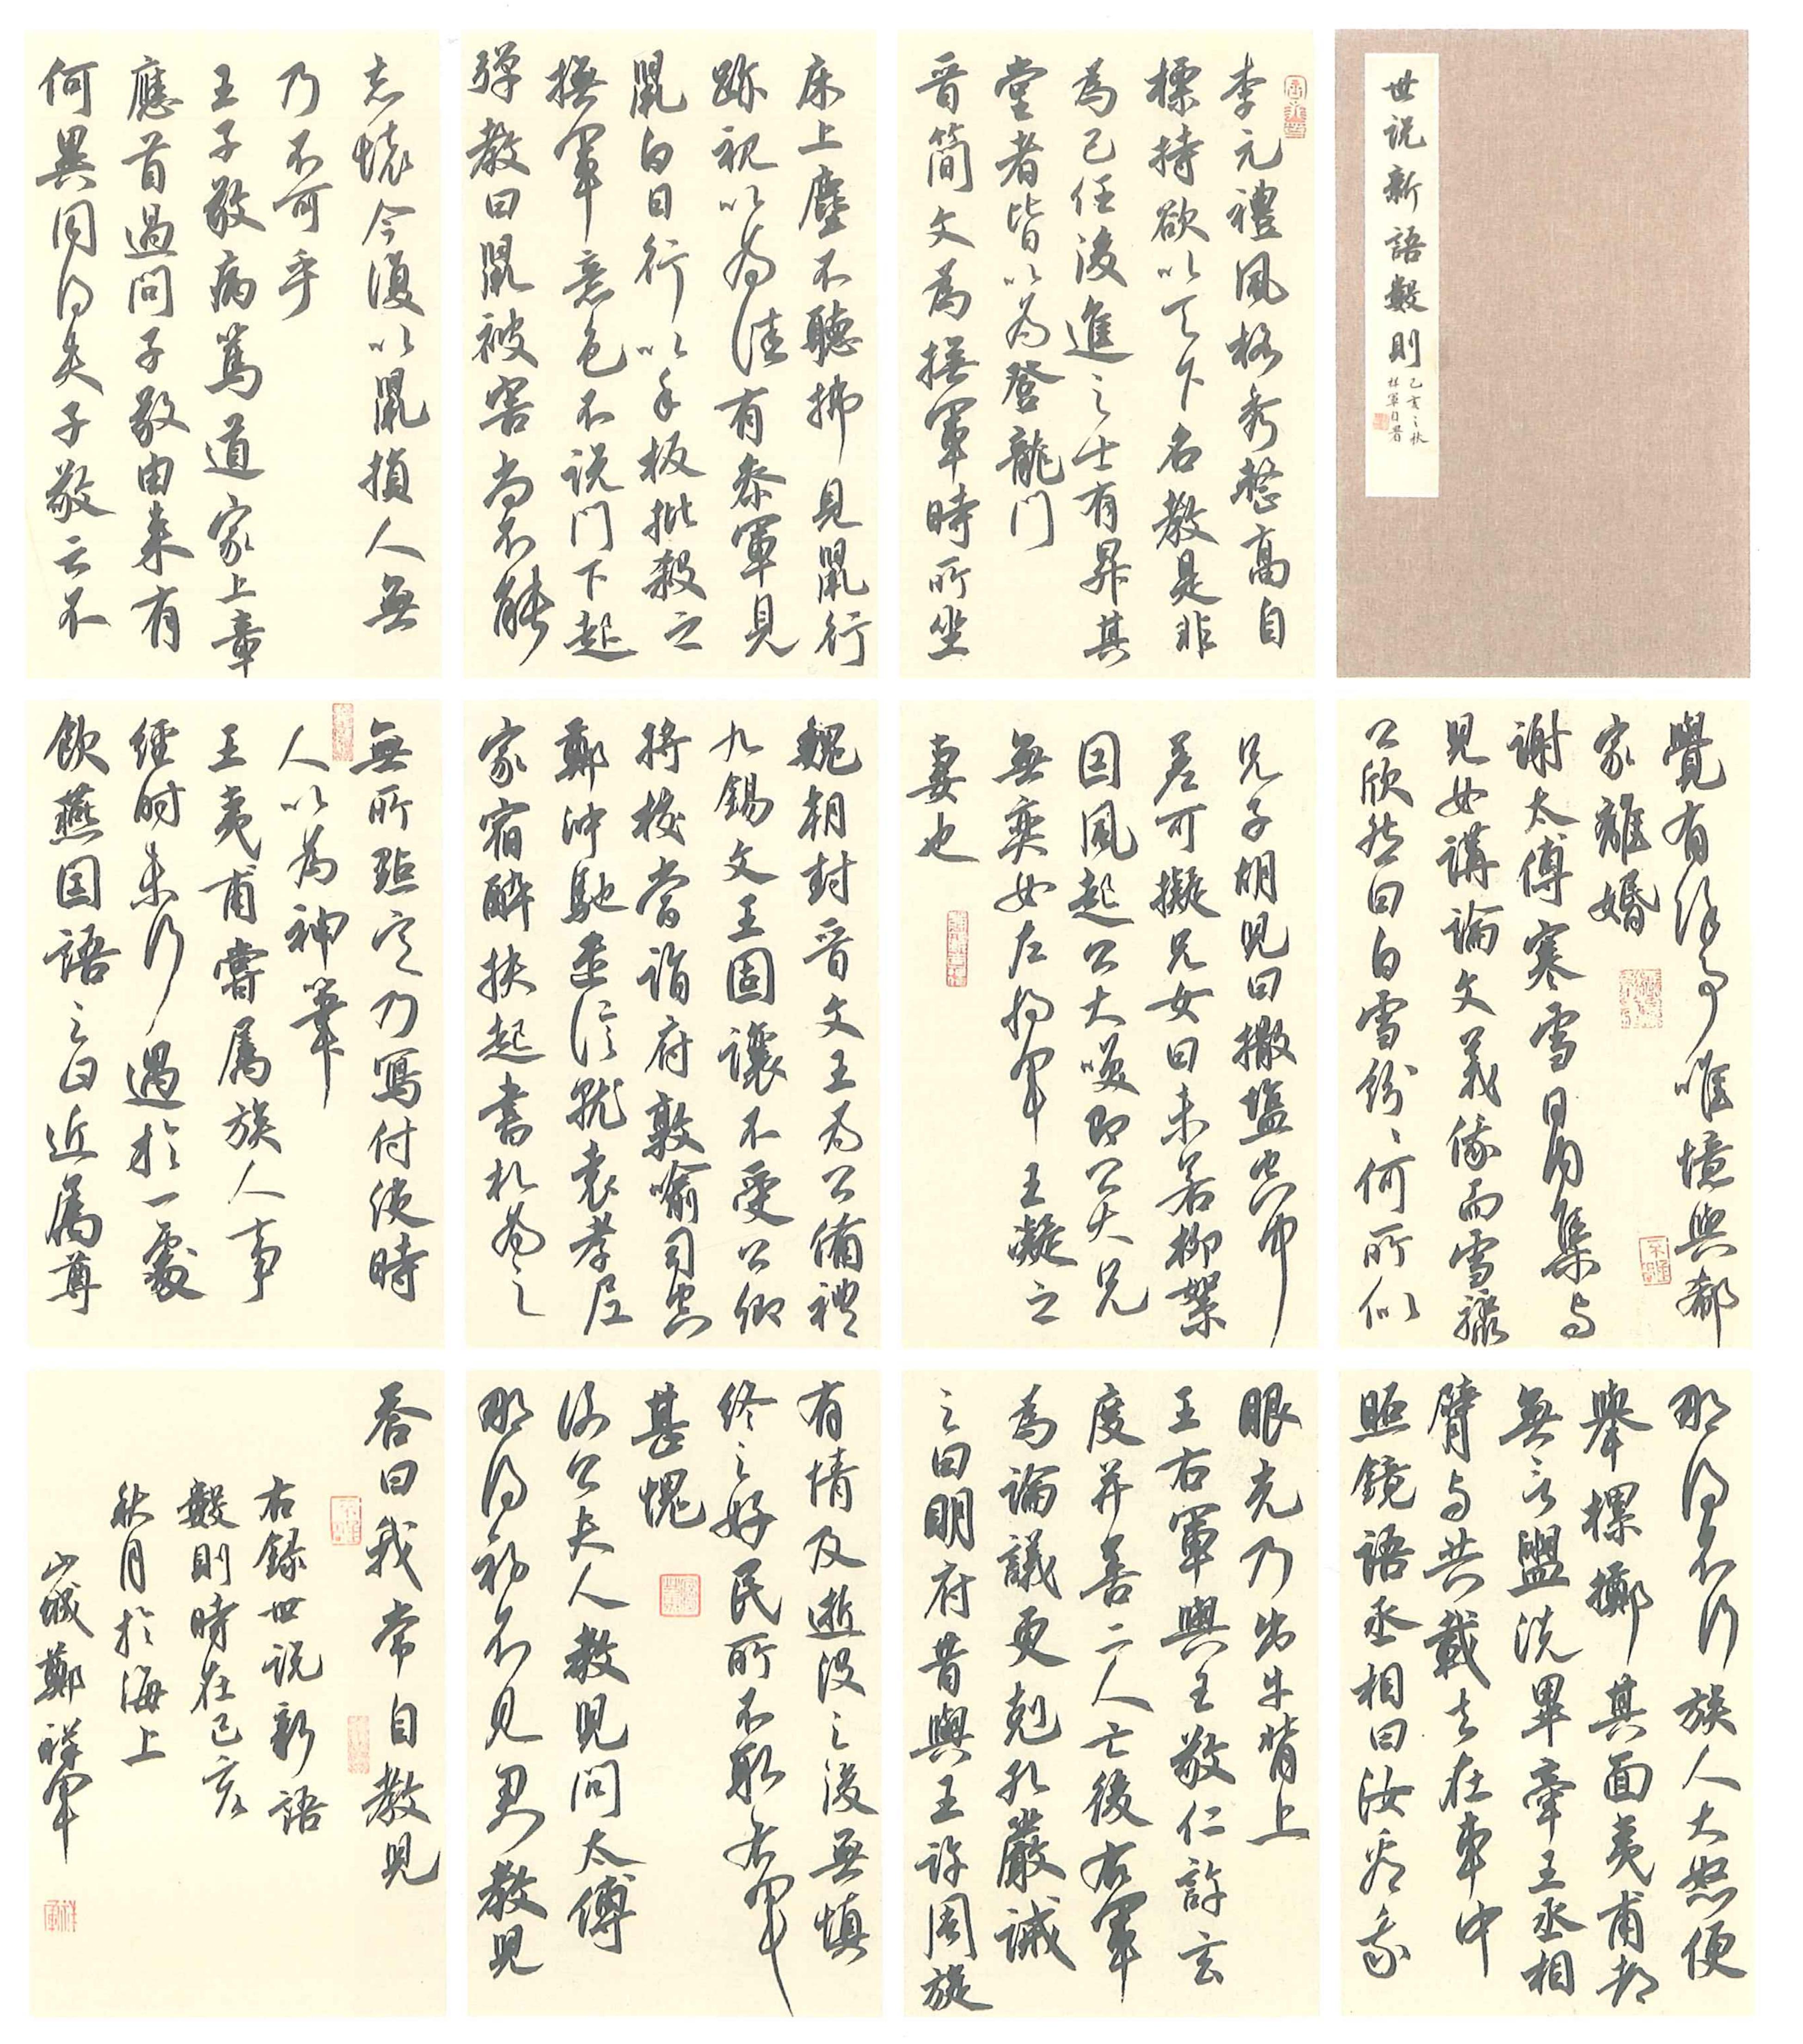 世说新語數則
己亥之秋
祥軍自署
李元禮風格秀整高自
標持欲以天下名教是非
為己任後進之士有昇其
堂者皆以為登龍門
晋簡文為撫軍時所坐
床上塵不聽拂見鼠行
跡視以為佳有參軍見
鼠白日行以手板批殺之
撫軍意色不说門下起
弹教曰鼠被害尚不能
忘懷今復以鼠損人無
乃不可乎
王子敬病篤道家上章
應首過問子敬由来有
何異同得失子敬云不
覺有餘事唯憶與郗
家離婚
谢太傅寒雪日内集与
兒女講論文義俄而雪驟
公欣然曰白雪纷纷何所似
兄子胡兒曰撒塩空中
差可擬兄女曰未若柳絮
因風起公大笑即公大兄
無奕女左将軍王凝之
妻也
魏朝封晋文王为公備禮
九錫文王固讓不受公卿
將校當詣府敦喻司空
鄭沖馳遣信就袁孝尼
家宿醉扶起書札为之
無所點定乃寫付使時
人以為神筆
王夷甫嘗属族人事
經时未行遇於一處
飲燕因語之曰近属尊
那得不行族人大怒便
舉樏擲其面夷甫都
無言盥洗畢牽王丞相
臂与共載去在車中
照鏡語丞相曰汝看我
眼光乃出牛背上
王右軍與王敬仁許玄
度并善二人亡後右軍
為論議更剋孔巖诫
之曰明府昔與王許周旋
有情及逝没之後無慎
终之好民所不取右軍
甚愧
谢公夫人教兒問太傅
那得初不見君教兒
答曰我常自教兒
右録世说新語
數則時在己亥
秋月於海上
山城鄭祥軍